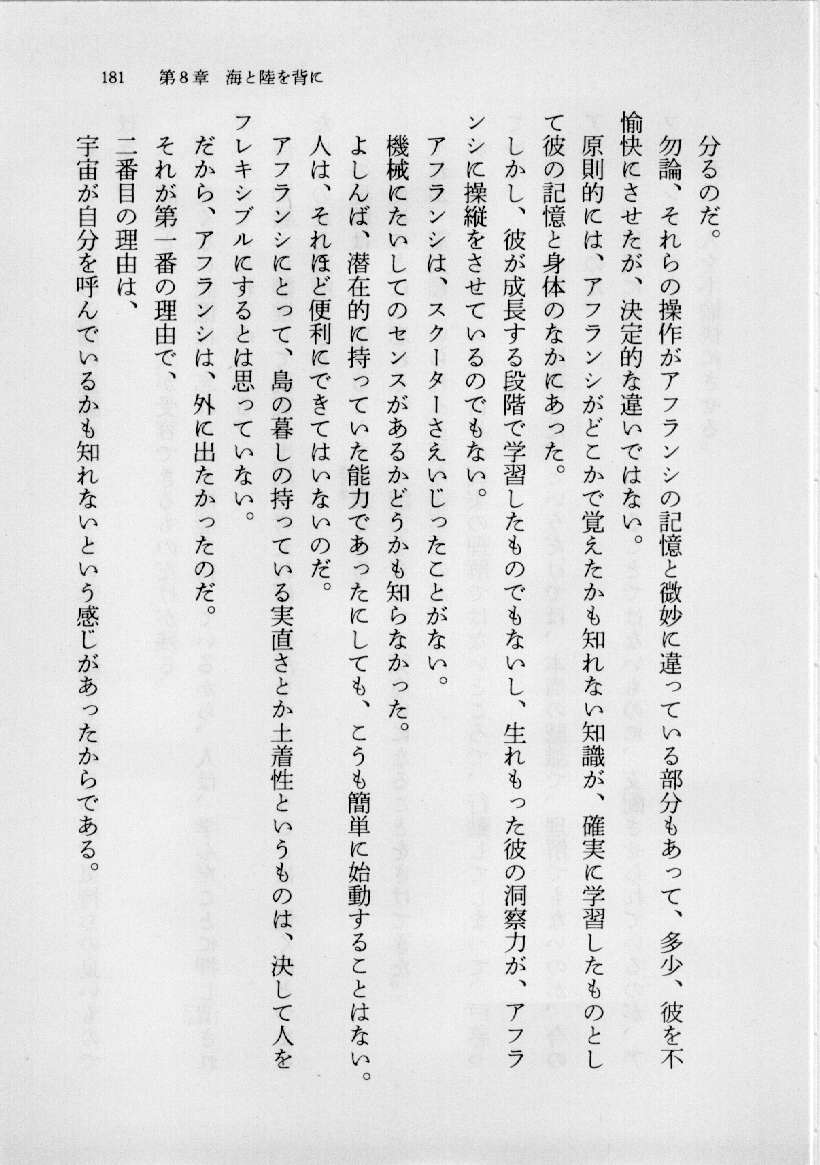 181　第8章　海と陸を背に
分るのだ。
勿論、それらの操作がアフランシの記憶と微妙に違っている部分もあって、多少、彼を不
愉快にさせたが、決定的な違いではない。
原則的には、アフランシがどこかで覚えたかも知れない知識が、確実に学習したものとし
て彼の記憶と身体のなかにあった。
しかし、彼が成長する段階で学習したものでもないし、生れもった彼の洞察力が、アフラ
ンシに操縦をさせているのでもない。
アフランシは、スクーターさえいじったことがない。
機械にたいしてのセンスがあるかどうかも知らなかった。
よしんば、潜在的に持っていた能力であったにしても、こうも簡単に始動することはない。
人は、それほど便利にできてはいないのだ。
アフランシにとって、島の暮しの持っている実直さとか土着性というものは、決して人を
フレキシブルにするとは思っていない。
だから、アフランシは、外に出たかったのだ。
それが第一番の理由で、
二番目の理由は、
宇宙が自分を呼んでいるかも知れないという感じがあったからである。